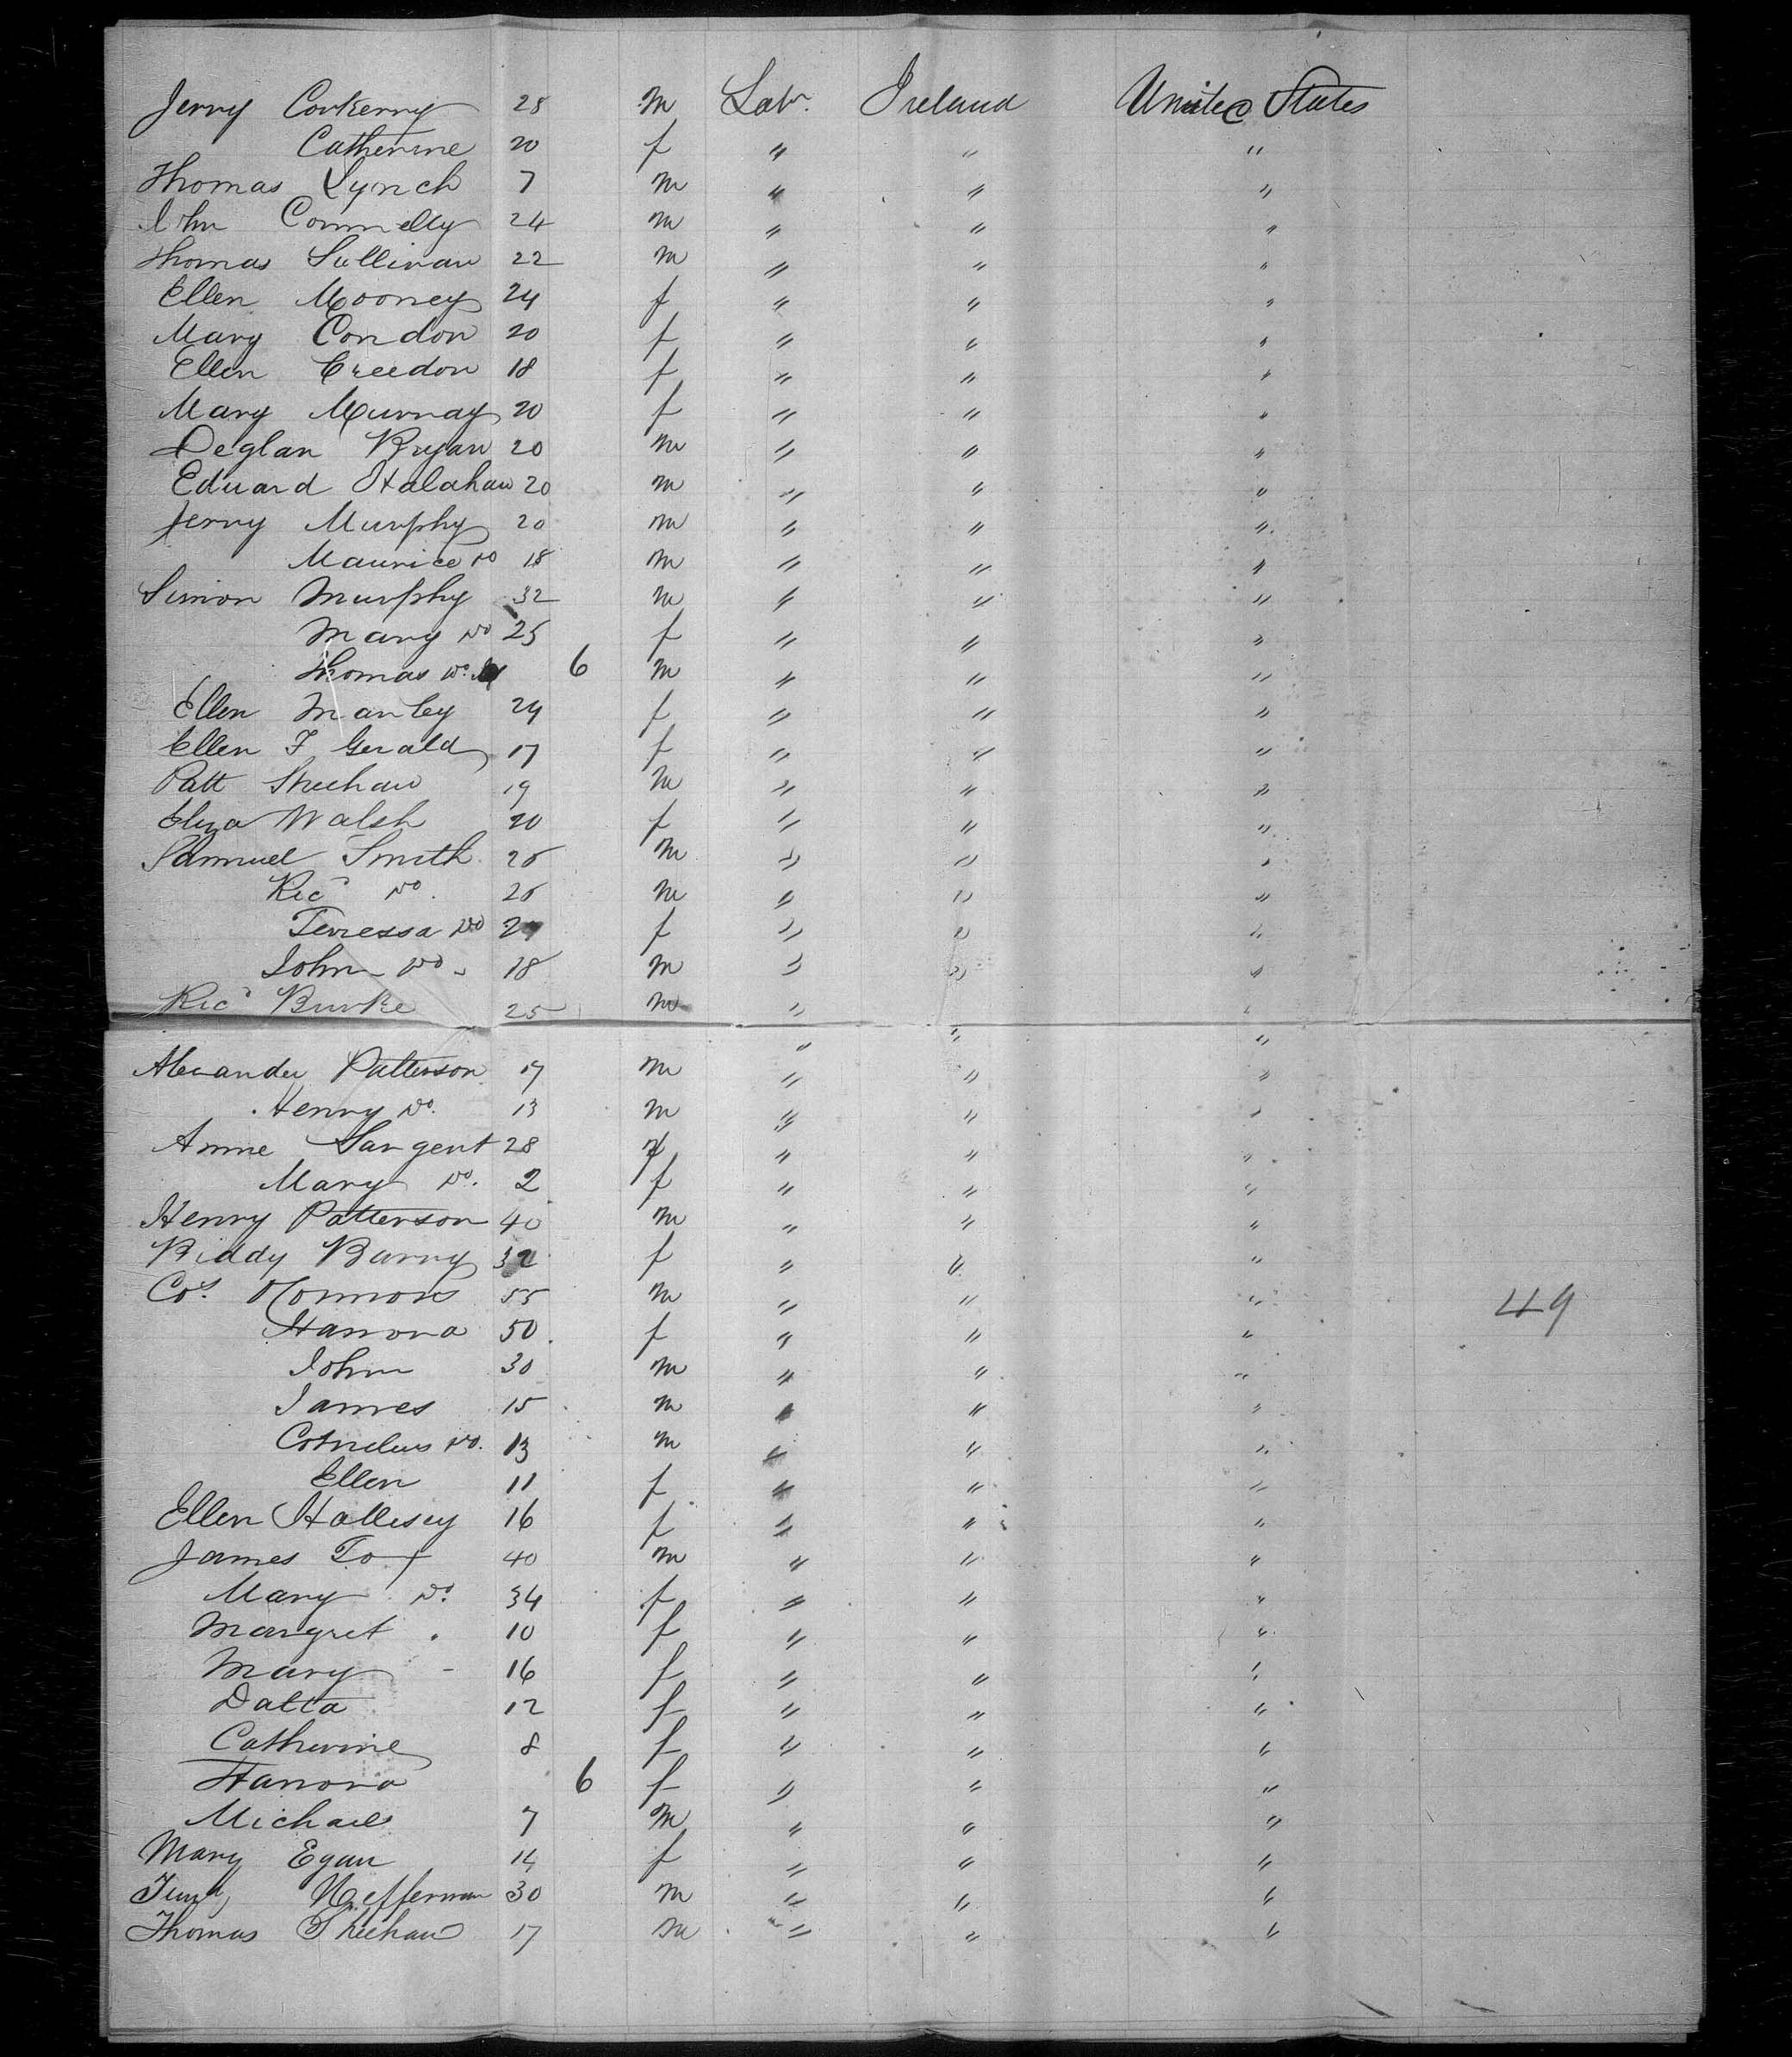 Jerry Corkerry 28 m Labr. Ireland United States
Catherine 20 f " " "
Thomas Lynch 7 m " " "
John Connelly 24 m " " "
Thomas Sullivan 22 m " " "
Ellen Mooney 24 f " " "
Mary Condon 20 f " " "
Ellen Creedon 18 f " " "
Mary Murray 20 f " " "
Deglan Ryan 20 m " " "
Edward Halahan 20 m " " "
Jerry Murphy 20 m " " "
Maurice Do 18 m " " "
Simon Murphy 32 m " " "
Mary Do 25 f " " "
Thomas Do. 6 m " " "
Ellen Manley 24 f " " "
Ellen F Gerald 17 f " " "
Patt Sheehan 19 m " " "
Eliza Walsh 20 f " " "
Samuel Smith 26 m " " "
Ricd Do. 26 m " " "
Terressa Do f " " "
John Do 18 m " " "
Ricd Burke 25 m " " "
" " "
Alexander Patterson 17 m " " "
Henry Do. 13 m " " "
Anne Sargent 28 f " " "
Mary Do. 2 f " " "
Henry Patterson 40 m " " "
Biddy Barry 32 f " " "
Cors. OConnors 55 m " " "
49
Hanora 50 f " " "
John 30 m " " "
James 15 m " " "
Cornelius Do. 13 m " " "
Ellen 11 f " " "
Ellen Hallisey 16 f " " "
James 40 m " " "
Mary Do. 34 f " " "
Margret 10 f " " "
Mary 16 f " " "
12 f " " "
Catherine 8 f " " "
Hanora 6 f " " "
Michael 7 m " " "
Mary Egan 14 f " " "
Timy Heffernan 30 m " " "
Thomas Sheehan 17 m " " "